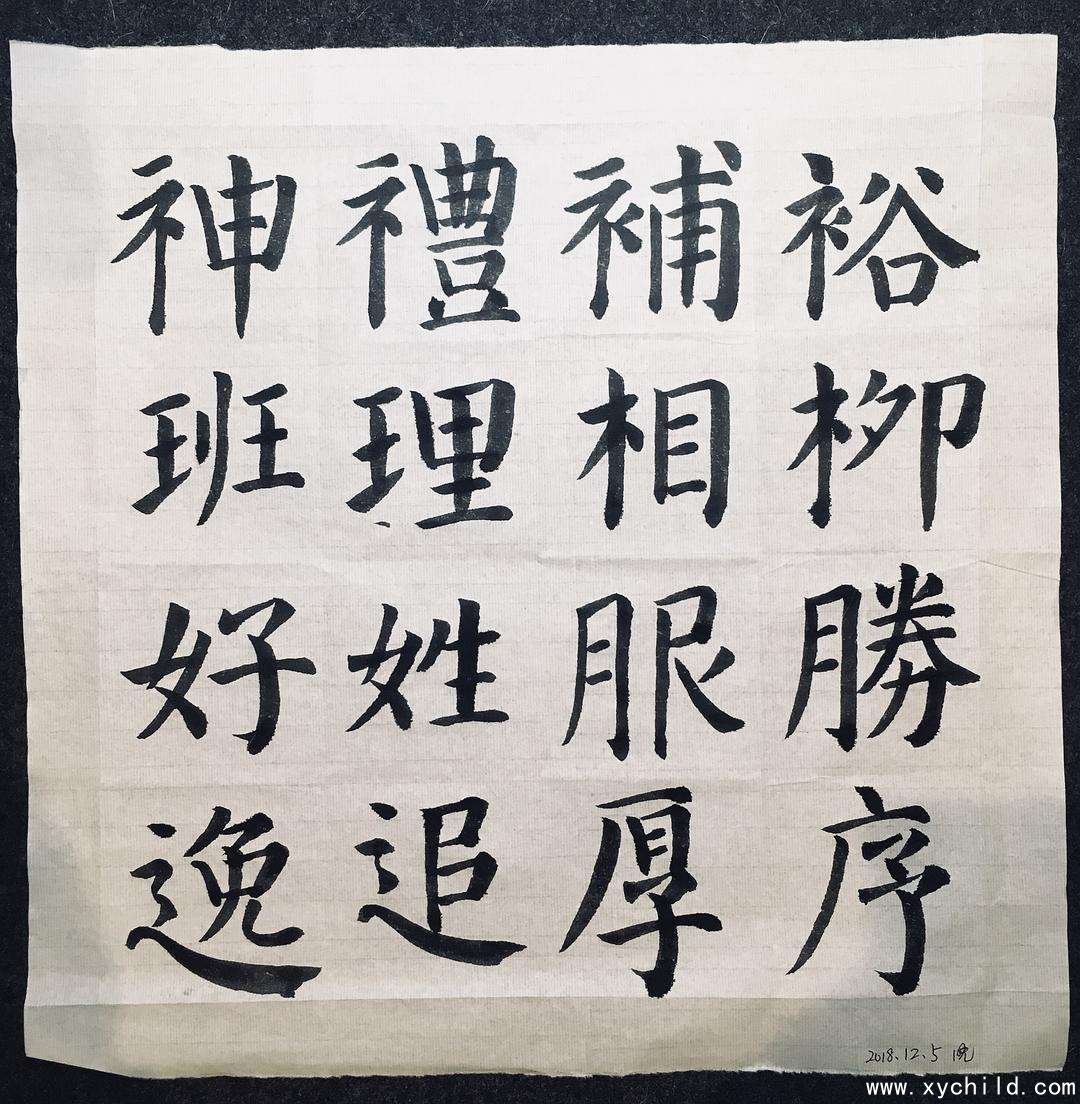 神禮補裕
班理相栁
好姓服勝
逸追厚序
2018.12.5 晚
www.xychild.com